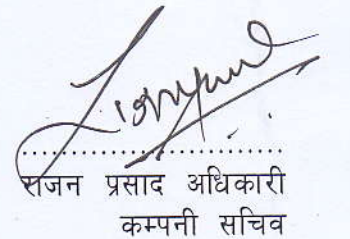 सजन प्रसाद अधिकारी
कम्पनी सचिव